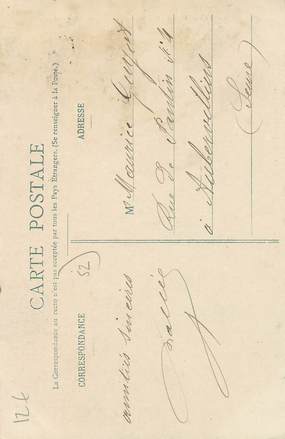 CARTE POSTALE
La Correspondance au recto n'est pas acceptée par tous les Pays Étrangers. (Se renseigner à la Poste).
CORRESPONDANCE
amitiés sincères
ADRESSE
M. Maurice
Rue de
à Aubervilliers
(Seine)
52